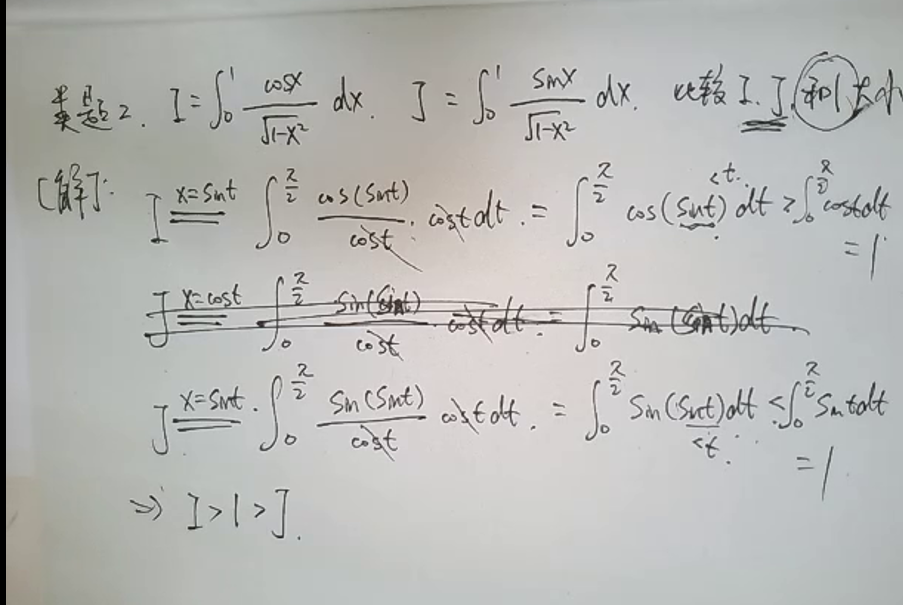 类题2. I = ∫₀¹ cosx/√(1-x²) dx. J = ∫₀¹ sinx/√(1-x²) dx. 比较 I. J. 和1大小
[解]: I (x=sint) = ∫₀^(π/2) cos(sint)/cost · cost dt. = ∫₀^(π/2) cos(sint) dt > ∫₀^(π/2) cost dt
<t.
= 1
J (x=cost) = ∫₀^(π/2) sin(sint)/cost · cost dt = ∫₀^(π/2) sin(sint) dt
J (x=sint). = ∫₀^(π/2) sin(sint)/cost cost dt. = ∫₀^(π/2) sin(sint) dt < ∫₀^(π/2) sint dt
<t.
= 1
⇒ I > 1 > J.